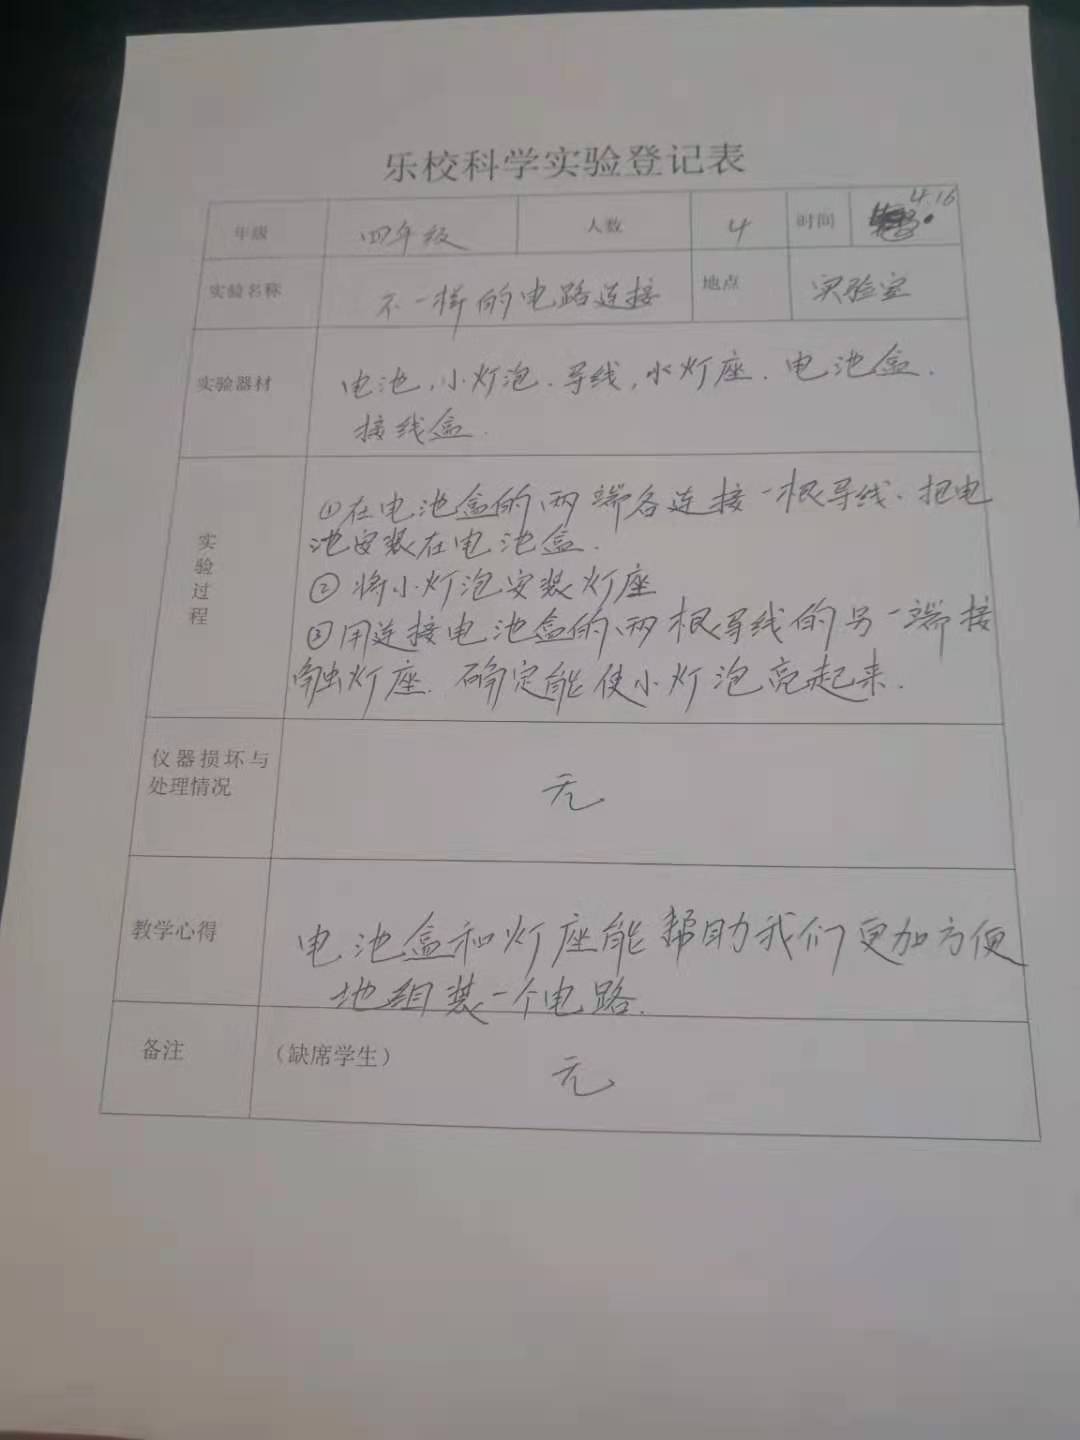 乐校科学实验登记表
年级 四年级 人数 4 时间 4.16
实验名称 不一样的电路连接 地点 实验室
实验器材 电池.小灯泡.导线,小灯座.电池盒.
接线盒.
实验过程
①在电池盒的两端各连接一根导线.把电
池安装在电池盒.
②将小灯泡安装灯座
③用连接电池盒的两根导线的另一端接
触灯座.确定能使小灯泡亮起来.
仪器损坏与
处理情况
无
教学心得 电池盒和灯座能帮助我们更加方便
地组装一个电路.
备注 (缺席学生) 无